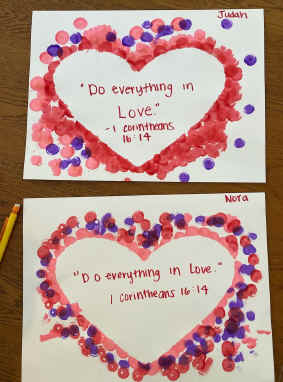 Judah
"Do everything in
Love."
- 1 corintheans
16:14
Nora
"Do everything in Love."
1 corintheans 16:14